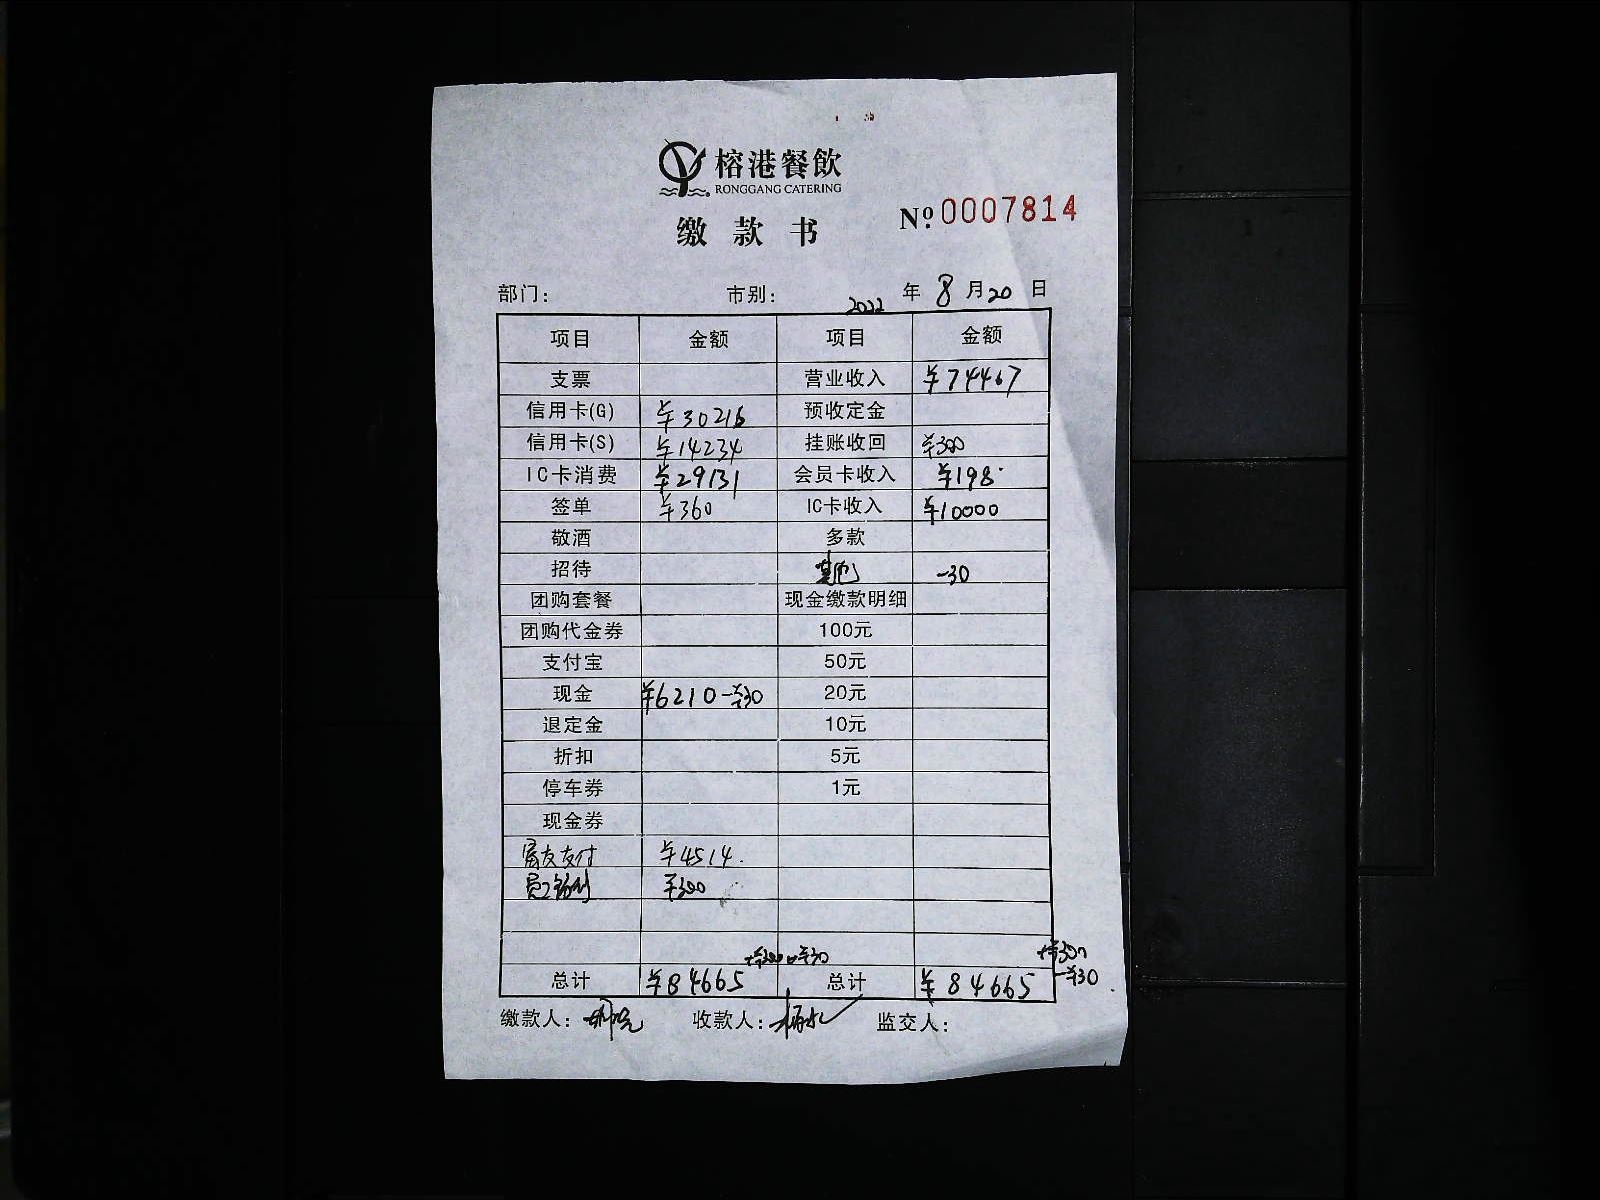 榕港餐飲
RONGGANG CATERING
缴款书
№ 0007814
部门： 市别： 2022 年 8 月 20 日
项目 金额 项目 金额
支票 营业收入 ¥74467
信用卡(G) ¥30216 预收定金
信用卡(S) ¥14234 挂账收回 ¥300
IC卡消费 ¥29131 会员卡收入 ¥198
签单 ¥360 IC卡收入 ¥10000
敬酒 多款
招待 其他 -30
团购套餐 现金缴款明细
团购代金券 100元
支付宝 50元
现金 ¥6210-¥30 20元
退定金 10元
折扣 5元
停车券 1元
现金券
友支付 ¥4514
员工 ¥300
+¥300-¥30 +¥300
总计 ¥84665 总计 ¥84665 -¥30
缴款人： 收款人： 监交人：